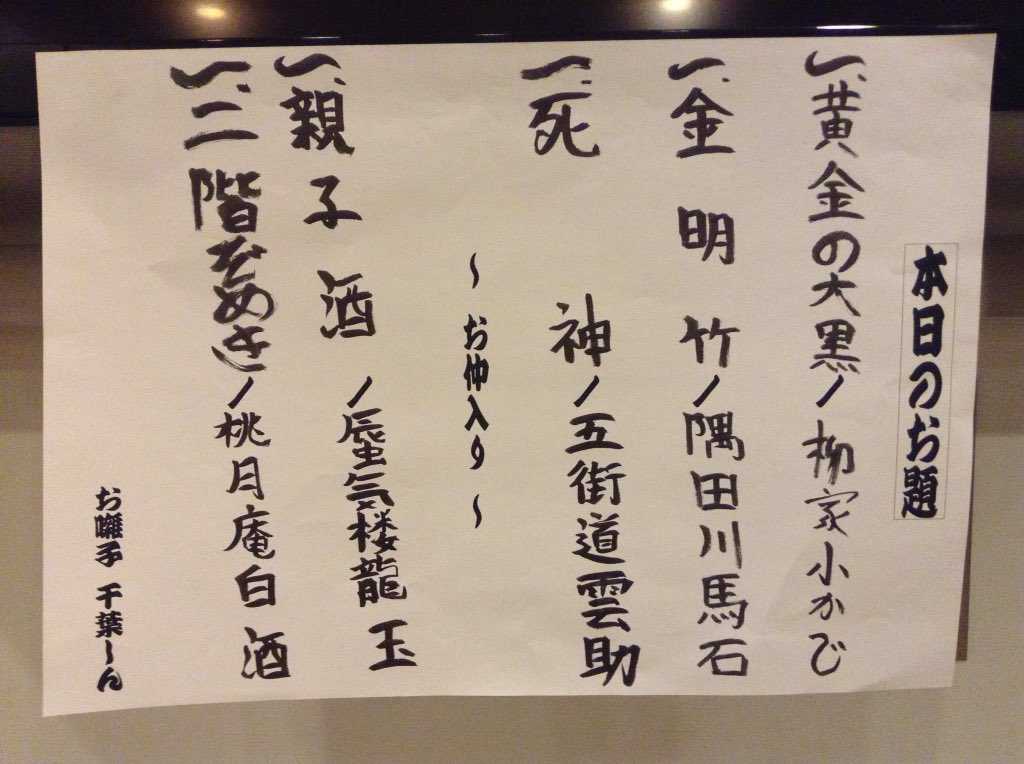 本日のお題
一、黄金の大黒/柳家小かじ
一、金明竹/隅田川馬石
一、死神/五街道雲助
~お仲入り~
一、親子酒/蜃気楼龍玉
一、二階ぞめき/桃月庵白酒
お囃子 千葉しん